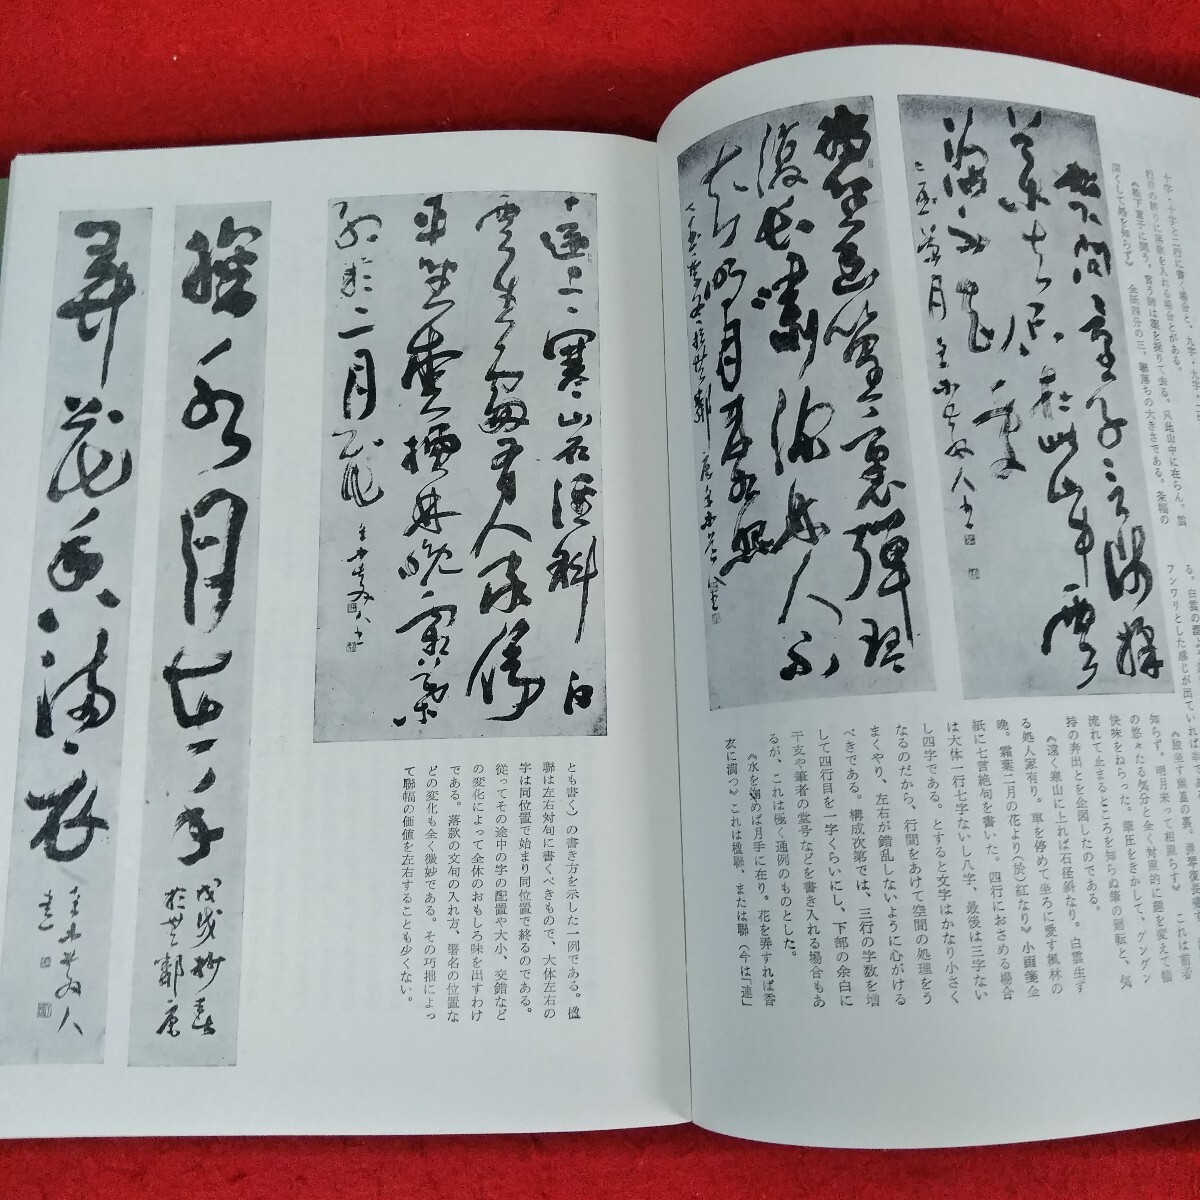 十字・十字と二行に書く場合と、九字・九字・二
行目の終りに落款を入れる場合とがある。
《松下童子に問う。言う師は薬を採りて去る。只此山中に在らん。雲
深くして処を知らず》　全紙四分の三、聯落ちの大きさである。条幅の
フンワリとした感じが出ていれば幸であ
知らず。明月来って相照らす》
の悠々たる気分と全く対照的に趣を変えて軽
快味をねらった。筆圧をきかして、グングン
流れて止まるところを知らぬ筆の廻転と、気
持の奔出とを企図したのである。
《遠く寒山に上れば石径斜なり。白雲生ず
る処人家有り。車を停めて坐ろに愛す楓林の
晩。霜葉二月の花より（於）紅なり》小画箋全
紙に七言絶句を書いた。四行におさめる場合
は大体一行七字ないし八字、最後は三字ない
し四字である。とすると文字はかなり小さく
なるのだから、行間をあけて空間の処理をう
まくやり、左右が錯乱しないように心がける
べきである。構成次第では、三行の字数を増
して四行目を一字くらいにし、下部の余白に
干支や筆者の堂号などを書き入れる場合もあ
るが、これは極く通例のものとした。
《水を掬めば月手に在り。花を弄すれば香
衣に満つ》これは楹聯、または聯（今は「連」
松下問童子言師採
薬去只在此山中雲
深不知処
独坐幽篁裏弾琴
復長嘯深林人不
知明月来相照
遠上寒山石径斜白
雲生処有人家停
車坐愛楓林晩霜葉
紅於二月花
とも書く）の書き方を示した一例である。楹
聯は左右対句に書くべきもので、大体左右の
字は同位置で始まり同位置で終るのである。
従ってその途中の字の配置や大小、交錯など
の変化によって全体のおもしろ味を出すわけ
である。落款の文句の入れ方、署名の位置な
どの変化も全く微妙である。その巧拙によっ
て聯幅の価値を左右することも少くない。
掬水月在手
弄花香満衣